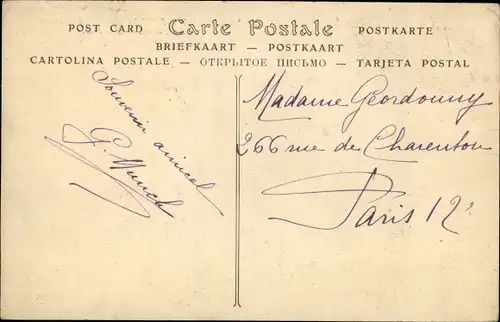 POST CARD Carte Postale POSTKARTE
BRIEFKAART — POSTKAART
CARTOLINA POSTALE — ОТКРЫТОЕ ПИСЬМО — TARJETA POSTAL
Souvenir amical
G. Munch
Madame Geordonny
266 rue de Charenton
Paris 12e